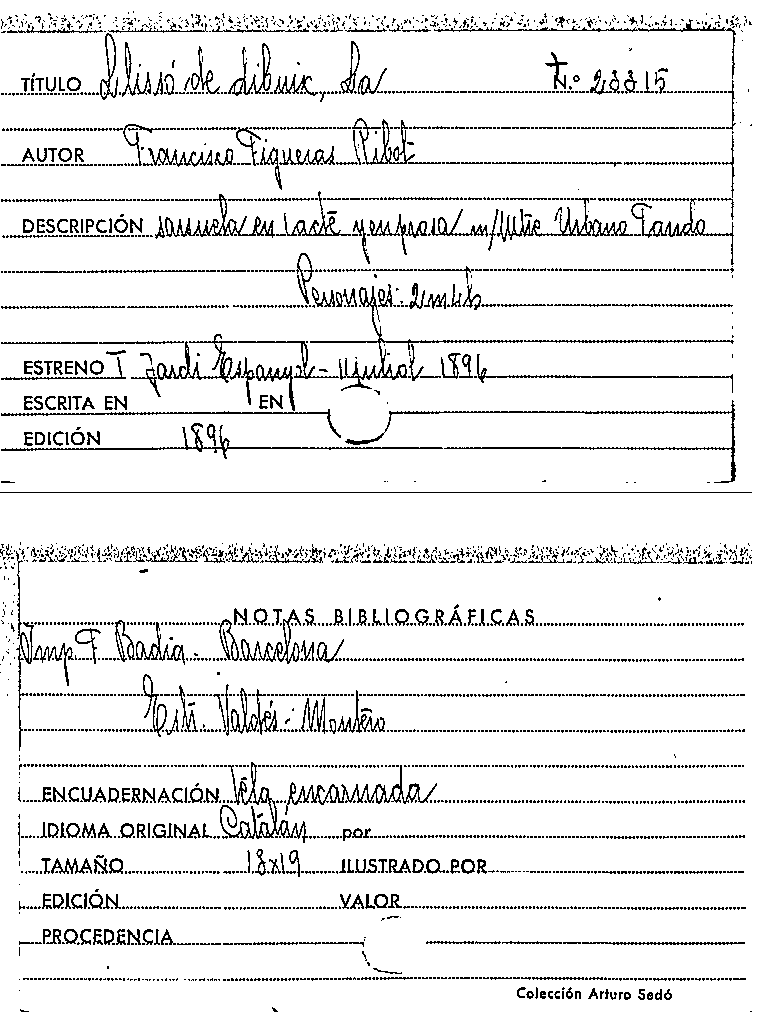 TÍTULO Llissó de dibuix, La N.º 28815
AUTOR Francisco Figueras Ribot
DESCRIPCIÓN sarsuela en 1 acte y en prosa m/ Mtre Urbano Fando
Personajes: 2 m 4 h
ESTRENO T Jardi Espanyol - 11 juliol 1896
ESCRITA EN EN
EDICIÓN 1896
NOTAS BIBLIOGRÁFICAS
Imp F Badia - Barcelona
Estr. Valdés - Montero
ENCUADERNACIÓN Tela encarnada
IDIOMA ORIGINAL Catalán por
TAMAÑO 18x19 ILUSTRADO POR
EDICIÓN VALOR
PROCEDENCIA
Colección Arturo Sedó